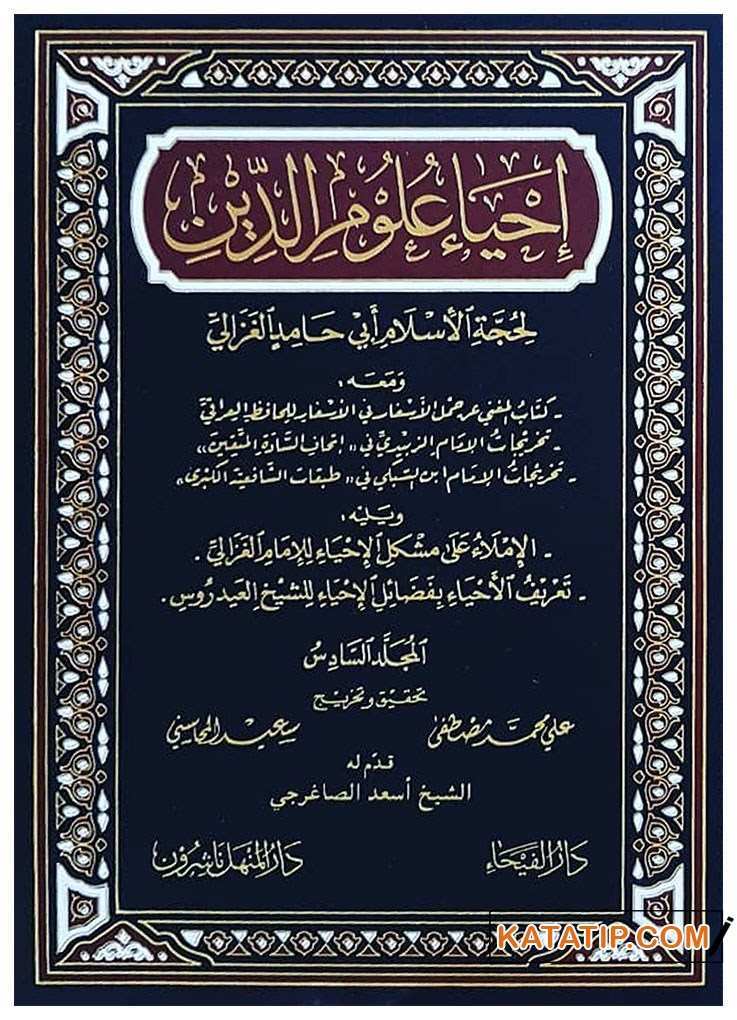 إِحْيَاءُ عُلُومِ الدِّينِ
لِحُجَّةِ الْأِسْلَامِ أَبِي حَامِدٍ الغَزَالِيِّ
وَمَعَهُ :
- كتَابُ المغني عن حمل الأسفار في الأسفار للحافظ العراقي
- تخريجاتُ الإمَام الزبيديِّ في « إتحاف السَّادة المتَّقين »
- تخريجاتُ الإمَام ابن السّبكي في « طبقات الشّافعيّة الكبرى »
ويليه :
- الإِمْلَاءُ عَلى مُشْكِلِ الإِحْيَاءِ لِلإِمَامِ الغَزَالِيِّ .
- تَعْرِيْفُ الأَحْيَاءِ بِفَضَائِلِ الإِحْيَاءِ لِلشَّيْخِ العَيدرُوسِ .
المُجَلَّد السَّادِسُ
تحقيق وتخريج
علي محمد مصطفى سعيد المحاسني
قدّم له
الشيخ أسعد الصاغرجي
دَارُ الفَيحَاءِ دَارُ المَنهَل نَاشِرُون
KATATIP.COM